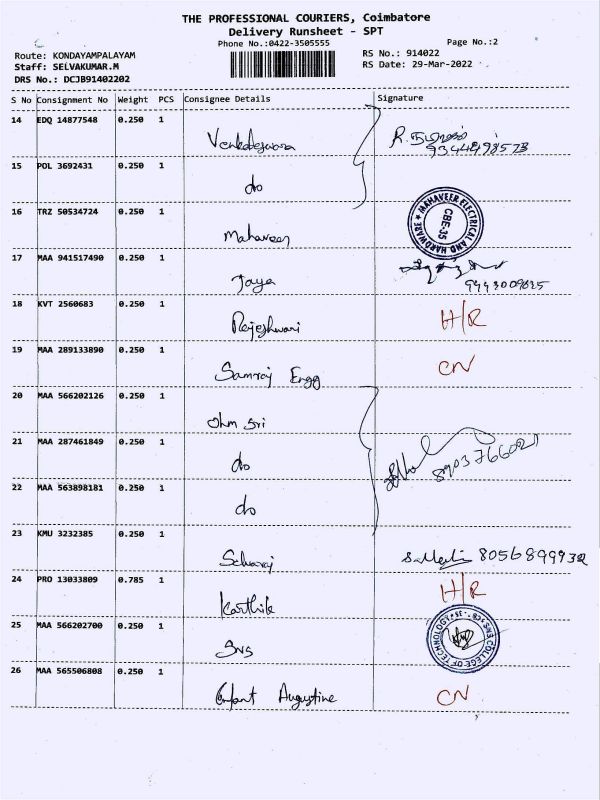 THE PROFESSIONAL COURIERS, Coimbatore
Delivery Runsheet - SPT
Phone No.:0422-3505555
Page No.:2
Route: KONDAYAMPALAYAM
RS No.: 914022
Staff: SELVAKUMAR.M
RS Date: 29-Mar-2022
DRS No.: DCJB91402202
S No Consignment No Weight PCS Consignee Details Signature
14 EDQ 14877548 0.250 1 Venkateswara
15 POL 3692431 0.250 1 do
16 TRZ 50534724 0.250 1 Mahaveer MAHAVEER ELECTRICAL AND HARDWARE ★ CBE-35
17 MAA 941517490 0.250 1 Jaya
18 KVT 2560683 0.250 1 Rajeshwari H/R
19 MAA 289133890 0.250 1 Samraj Engg CN
20 MAA 566202126 0.250 1 Ohm Sri
21 MAA 287461849 0.250 1 do 8903766021
22 MAA 563898181 0.250 1 do
23 KMU 3232385 0.250 1 Selvaraj
24 PRO 13033809 0.785 1 Karthik H/R
25 MAA 566202700 0.250 1 SNS SNS COLLEGE OF TECHNOLOGY
26 MAA 565506808 0.250 1 Infant Augustine CN